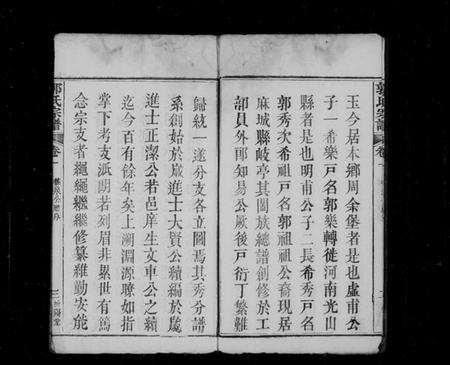 玉今居本鄉周余堡者是也虛甫公
子一希樂戶名郭樂轉徙河南光山
縣者是也明甫公子二長希秀戶名
郭秀次希祖戶名郭祖祖公裔現居
麻城縣岐亭其闔族總譜創修於工
部員外郎知易公厥後戶衍丁繁難
歸統一遂分支各立圖焉其秀分譜
系創始於處進士大賢公續編於處
進士正潔公若邑庠生文車公之續
迄今百有餘年矣上溯淵源瞭如指
掌下考支派朗若列眉非累世有篤
念宗支者繩繩繼繼修纂維勤安能
郭氏宗譜
卷一
三
汾陽堂
郭氏宗譜
卷一